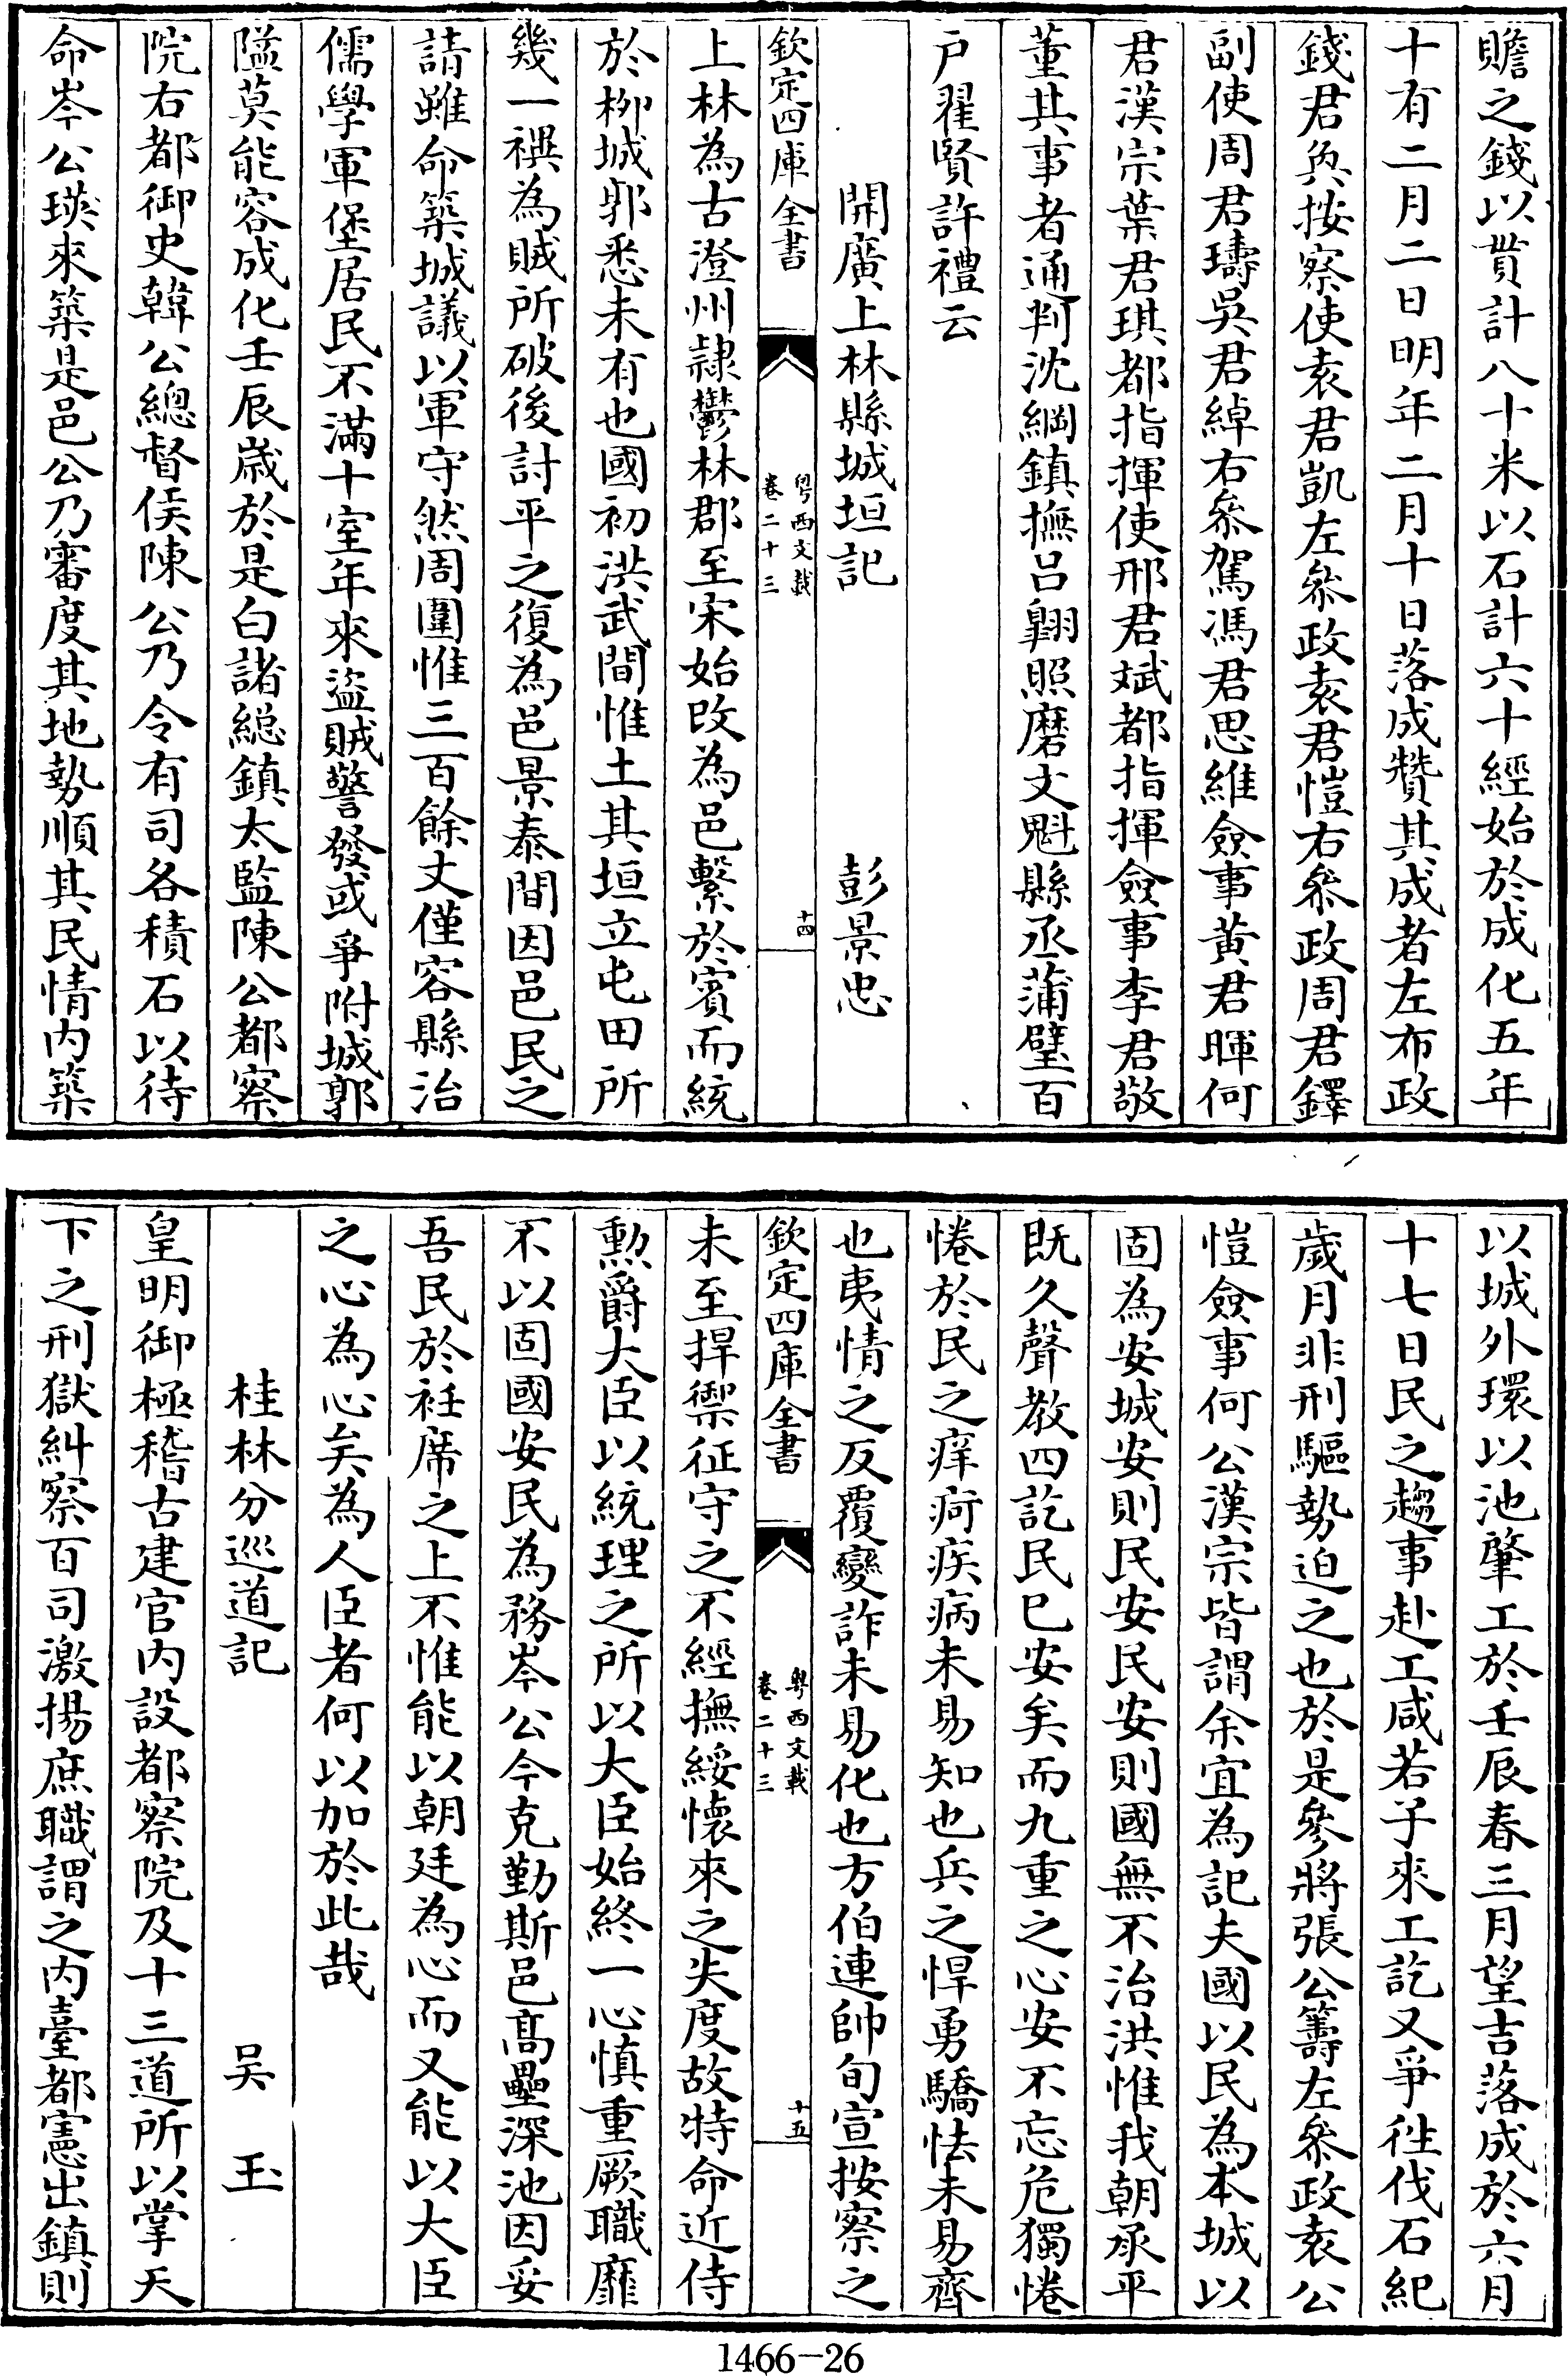 贍之錢以貫計八十米以石計六十經始於成化五年
十有二月二日明年二月十日落成贊其成者左布政
錢君奐按察使袁君凱左叅政袁君愷右叅政周君鐸
副使周君璹吳君綽右叅駕馮君思維僉事黄君暉何
君漢宗葉君琪都指揮使邢君斌都指揮僉事李君敬
董其事者通判沈綱鎮撫吕翺照磨文魁縣丞蒲璧百
户翟賢許禮云
開廣上林縣城垣記 彭景忠
欽定四庫全書 粤西文載 卷二十三 十四
上林為古澄州隷鬱林郡至宋始改為邑繫於賓而統
於柳城郭悉未有也國初洪武間惟土其垣立屯田所
幾一禩為賊所破後討平之復為邑景泰間因邑民之
請雖命築城議以軍守然周圍惟三百餘丈僅容縣治
儒學軍堡居民不滿十室年來盜賊警發或爭附城郭
隘莫能容成化壬辰歲於是白諸總鎮太監陳公都察
院右都御史韓公總督侯陳公乃令有司各積石以待
命岑公瑛來築是邑公乃審度其地勢順其民情内築
以城外環以池肇工於壬辰春三月望吉落成於六月
十七日民之趨事赴工咸若子來工訖又爭徃伐石紀
歲月非刑驅勢迫之也於是參將張公籌左叅政袁公
愷僉事何公漢宗皆謂余宜為記夫國以民為本城以
固為安城安則民安民安則國無不治洪惟我朝承平
既久聲教四訖民已安矣而九重之心安不忘危獨惓
惓於民之痒疴疾病未易知也兵之悍勇驕怯未易齊
也夷情之反覆變詐未易化也方伯連帥旬宣按察之
欽定四庫全書 粤西文載 卷二十三 十五
未至捍禦征守之不經撫綏懷來之失度故特命近侍
勲爵大臣以統理之所以大臣始終一心慎重厥職靡
不以固國安民為務岑公今克勤斯邑髙壘深池因妥
吾民於袵席之上不惟能以朝廷為心而又能以大臣
之心為心矣為人臣者何以加於此哉
桂林分巡道記 吴玉
皇明御極稽古建官内設都察院及十三道所以掌天
下之刑獄糾察百司激揚庶職謂之内臺都憲出鎮則
1466－26